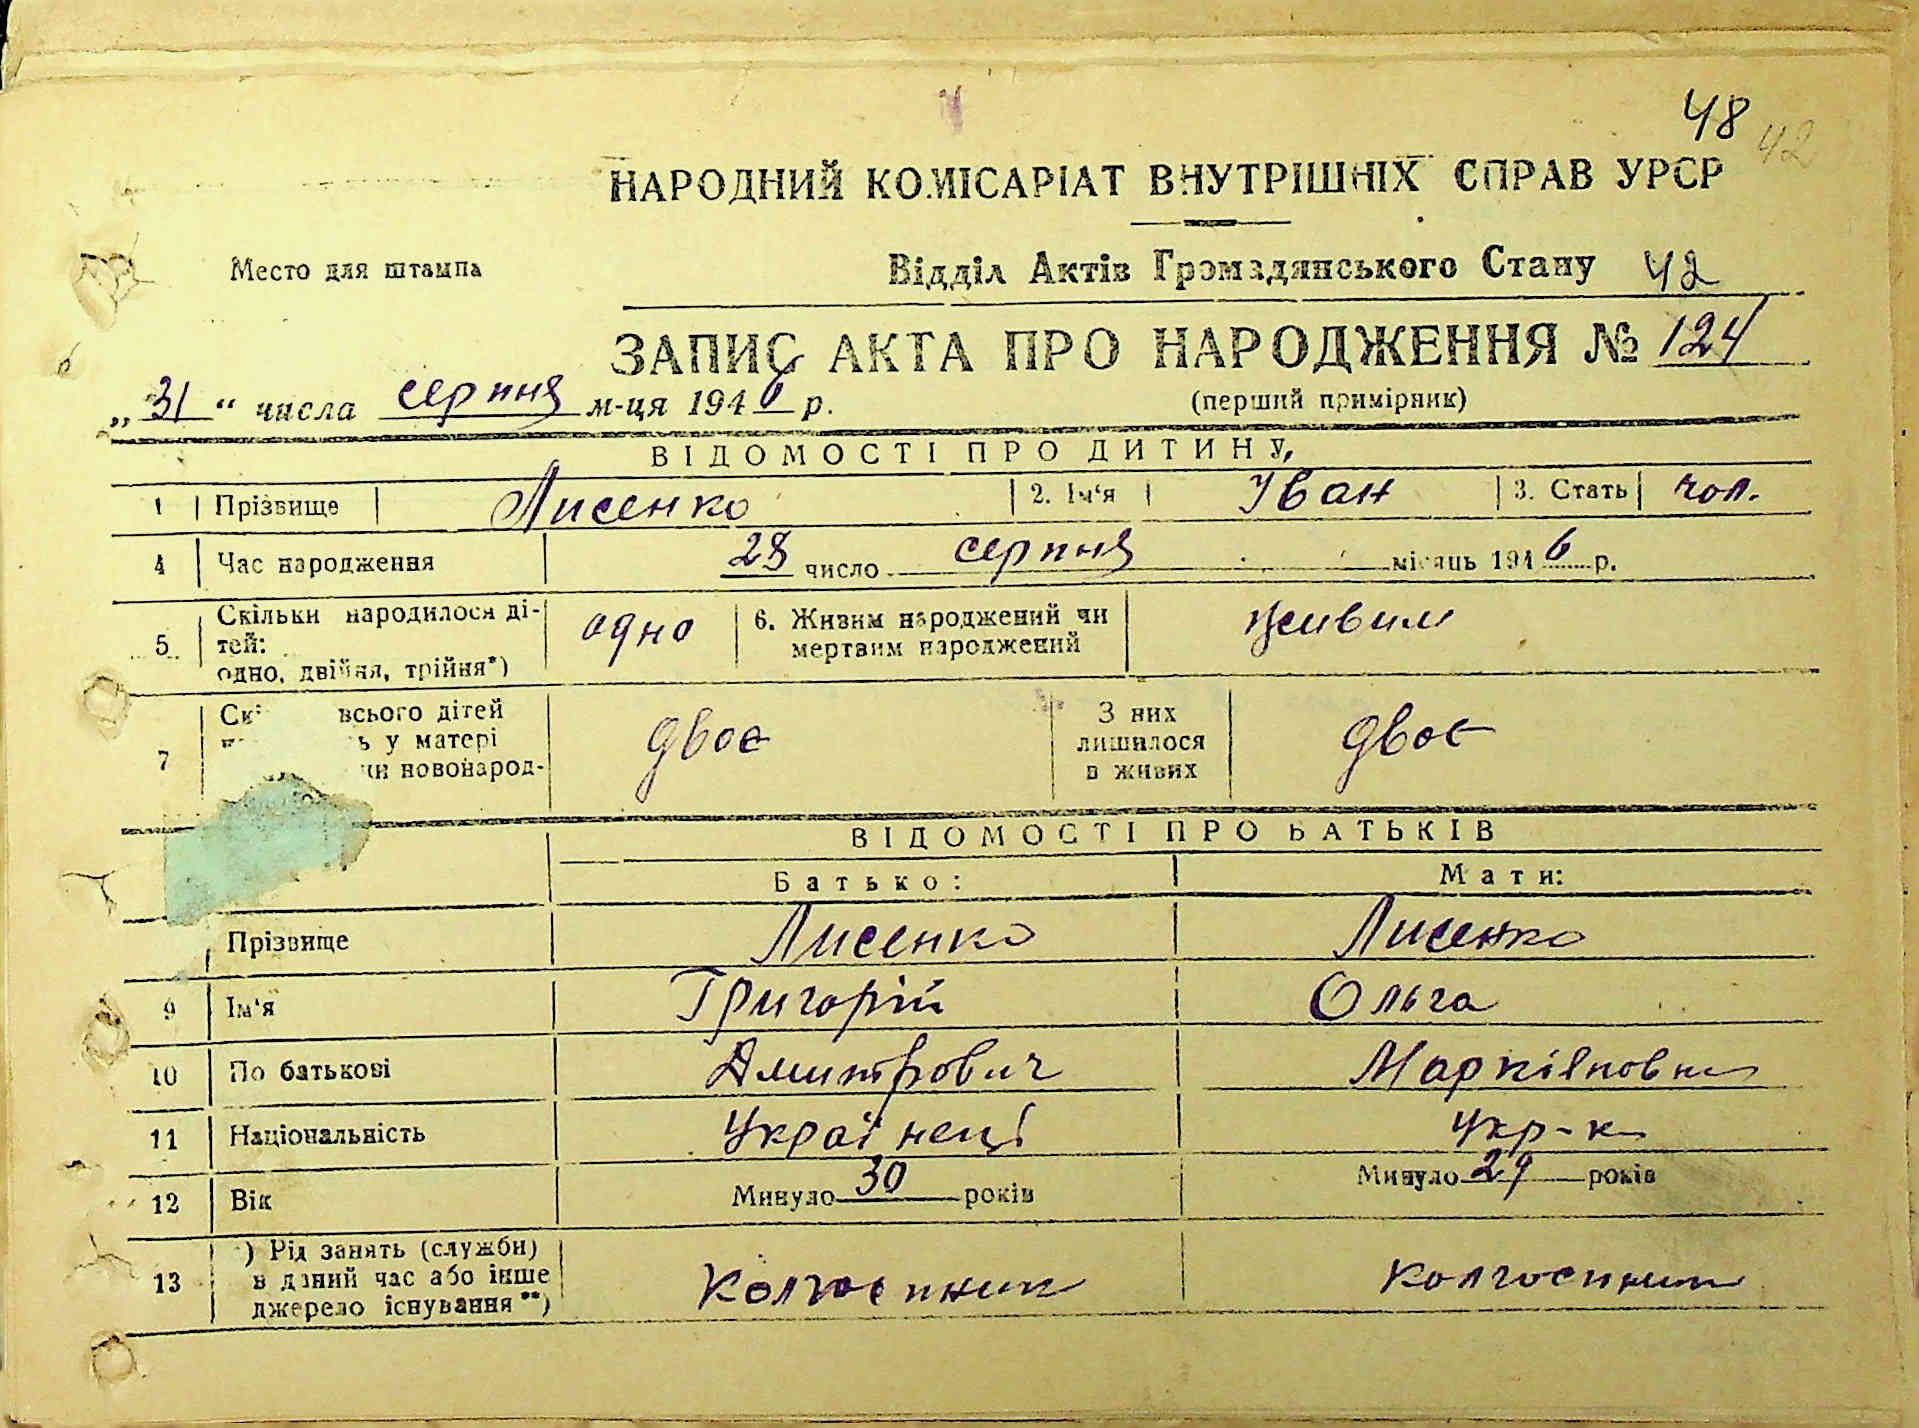 48 42
НАРОДНИЙ КОМІСАРІАТ ВНУТРІШНІХ СПРАВ УРСР
Место для штампа
Відділ Актів Громадянського Стану 42
ЗАПИС АКТА ПРО НАРОДЖЕННЯ № 124
„31“ числа серпня м-ця 1946 р.
(перший примірник)
ВІДОМОСТІ ПРО ДИТИНУ
1 Прізвище Лисенко 2. Ім‘я Іван 3. Стать чол.
4 Час народження 28 число серпня місяць 1946 р.
5 Скільки народилося ді-
тей:
одно, двійня, трійня*) одно 6. Живим народжений чи
мертвим народжений живим
7 всього дітей
у матері
новонарод- двоє З них
лишилося
в живих двоє
ВІДОМОСТІ ПРО БАТЬКІВ
Батько: Мати:
Прізвище Лисенко Лисенко
9 Ім‘я Григорій Ольга
10 По батькові Дмитрович Маркіяновна
11 Національність Українець Укр-к
12 Вік Минуло 30 років Минуло 29 років
13 ) Рід занять (служби)
в даний час або інше
джерело існування**) Колгоспник колгоспник